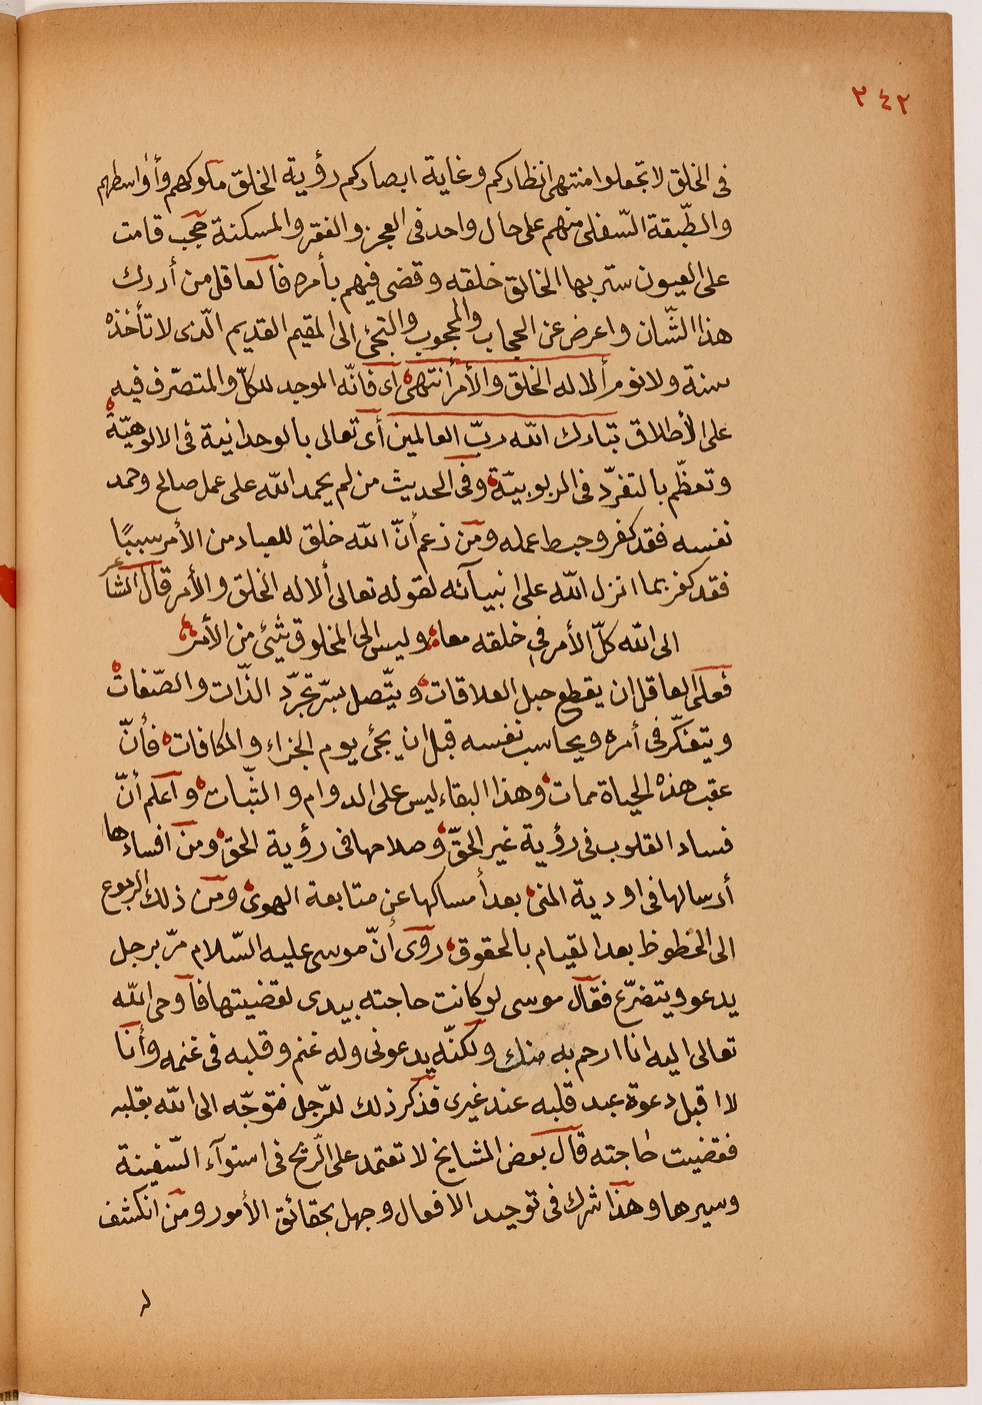 ٢٤٢
فى الخلق لا تجعلوا منتهى انظاركم وغاية ابصاركم رؤية الخلق ملوكهم وأواسطهم
والطّبقة السّفلى منهم على حال واحد فى العجز والفقر والمسكنة حجب قامت
على العيون ستر بها الخالق خلقه وقضى فيهم بأمره فالعاقل من أدرك
هذا الشّان واعرض عن الحجاب والمحجوب والتجئ الى المقيم القديم الّذى لا تأخذه
سنة ولا نوم ألا له الخلق والأمر انتهى اى فانّه الموجد للكلّ والمتصرّف فيه
على الأطلاق تبارك الله ربّ العالمين أى تعالى بالوحدانية فى الالوهيّة
وتعظّم بالتفرّد فى الربوبيّة وفى الحديث من لم يحمد الله على عمل صالح وحمد
نفسه فقد كفر وحبط عمله ومن زعم أنّ الله خلق للعباد من الأمر سببًا
فقد كفر بما انزل الله على انبيآئه لقوله تعالى ألا له الخلق والأمر قال الشاعر
الى الله كلّ الأمر في خلقه معا وليس الى المخلوق شئ من الأمر
فعلى العاقل ان يقطع حبل العلاقات ويتّصل بسرّ تجرّد الذّات والصّفات
ويتفكّر فى أمره ويحاسب نفسه قبل ان يجئ يوم الجزاء والمكافات فأنّ
عقب هذه الحياة ممات وهذا البقاء ليس على الدوام والثّبات واعلم أنّ
فساد القلوب فى رؤية غير الحقّ وصلاحها فى رؤية الحق ومن افسادها
أرسالها فى اودية المنى بعد أمساكها عن متابعة الهوى ومن ذلك الرجوع
الى الحظوظ بعد القيام بالحقوق روى أنّ موسى عليه السّلام مرّ برجل
يدعو ويتضرّع فقال موسى لو كانت حاجته بيدى لقضيتها فأوحى الله
تعالى اليه انا ارحم به منك ولكنّه يدعونى وله غنم وقلبه فى غنمه وأنا
لا اقبل دعوة عبد قلبه عند غيرى فذكر ذلك للرّجل فتوجّه الى الله بقلبه
فقضيت حاجته قال بعض المشايخ لا تعتمد على الرّيح فى استوآء السّفينة
وسيرها وهذا شرك فى توحيد الافعال وجهل بحقائق الأمور ومن انكشف